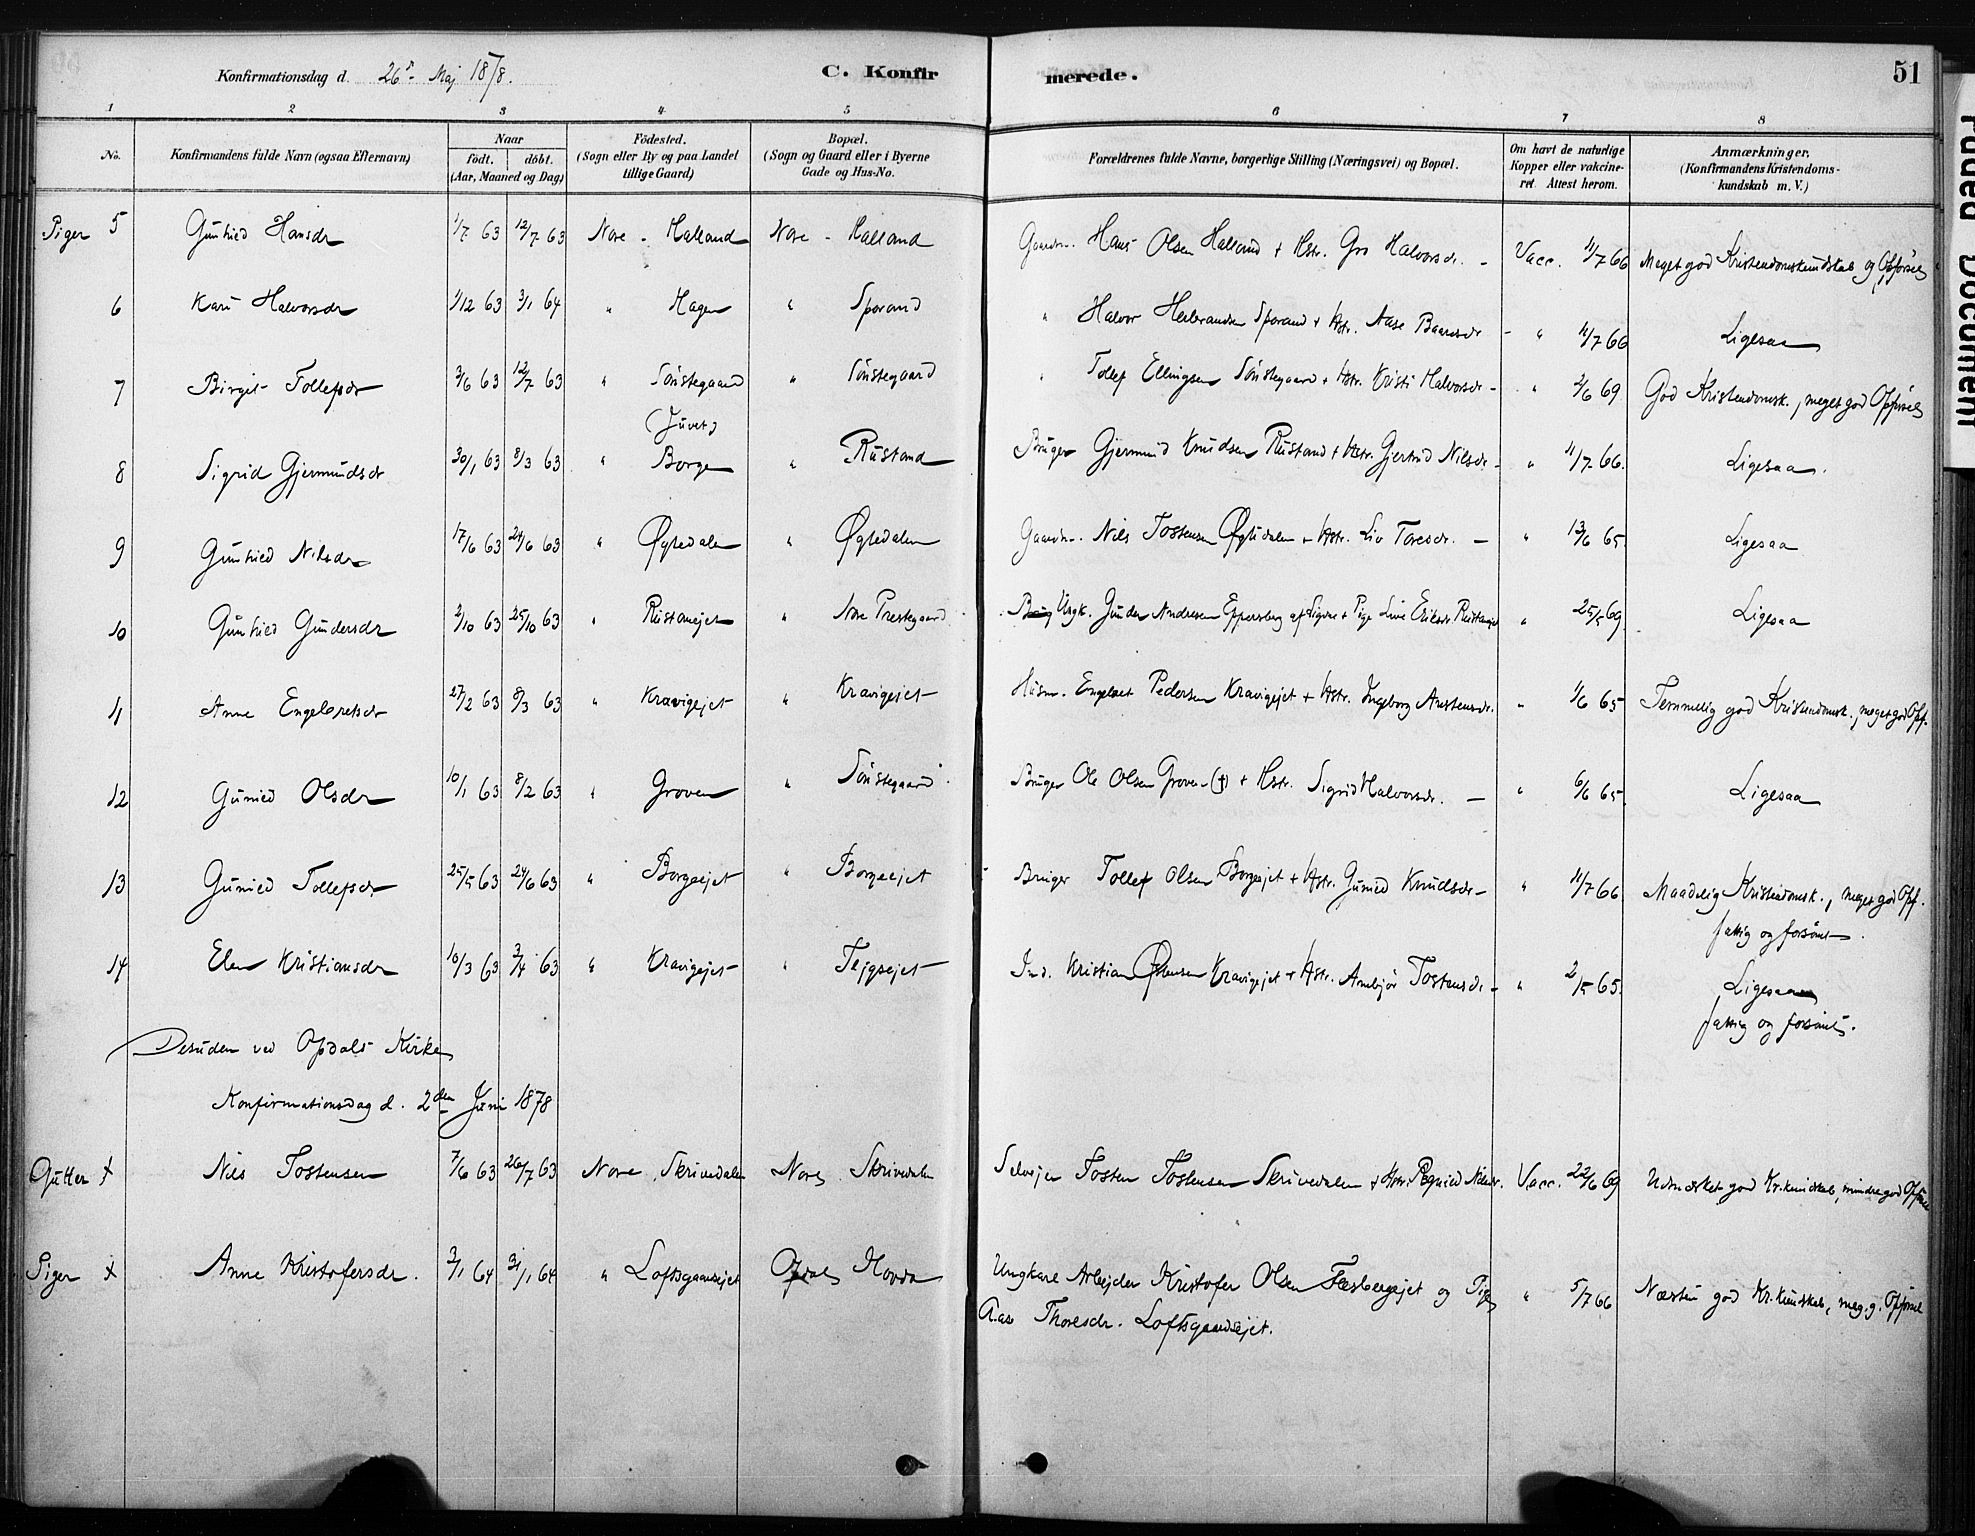 Konfirmationsdag d. 26de Maj 1878. C. Konfirmerede. 51
1 2 3 4 5 6 7 8
No. Konfirmandens fulde Navn (ogsaa Efternavn) Naar födt. döbt. (Aar, Maaned og Dag) Födested. (Sogn eller By og paa Landet tillige Gaard) Bopæl. (Sogn og Gaard eller i Byerne Gade og Hus-No. Forældrenes fulde Navne, borgerlige Stilling (Næringsvei) og Bopæl. Om havt de naturlige Kopper eller vakcineret. Attest herom. Anmærkninger, (Konfirmandens Kristendomskundskab m. V.)
Piger 5 Gunhild Hansdr 1/7 63 12/7 63 Nore - Halland Nore - Halland Gaardm. Hans Olsen Halland + Hstr. Gro Halvorsdr. - Vacc. 11/7 66 Meget god Kristendomskundskab og Opförsel
6 Kari Halvorsdr 1/12 63 3/1 64 " Hagen " Sporand " Halvor Herbrandsen Sporand + Hstr. Aase Baardsdr - " 11/7 66 Ligesaa
7 Birgit Tollefsdr 3/6 63 12/7 63 " Sönstegaard " Sönstegaard " Tollef Ellingsen Sönstegaard + Hstr. Kristi Halvorsdr - " 2/6 69 God Kristendomsk., meget god Opförsel
(Juvet)
8 Sigrid Gjermundsdr 30/1 63 8/3 63 " Borge " Rustand Bruger Gjermund Knudsen Rustand + Hstr. Gjertrud Nilsdr - " 11/7 66. Ligesaa.
9 Gunhild Nilsdr 17/6 63 24/6 63 " Øgledalen " Øgledalen Gaardm. Nils Tostensen Øgledalen + Hstr. Liv Toresdr. - " 13/6 65. Ligesaa
10 Gunhild Gundersdr 2/10 63 25/10 63 " Rustanejet " Nore Prestegaard Brug Ungk. Gunder Andersen Eppersberg af Sigdal + Pige Live Eriksdr Rustanejet " 25/5 69. Ligesaa
11 Anne Engebretsdr 27/2 63 8/3 63 " Kravigejet " Kravigejet Husm. Engebret Pedersen Kravigejet + Hstr. Ingeborg Anstensdr. " 1/6 65 Temmelig god Kristendomsk., meget god Opf.
12 Gunild Olsdr 10/1 63 8/2 63 " Groven " Sönstegaard Bruger Ole Olsen Groven (†) + Hstr. Sigrid Halvorsdr. - " 6/6 65. Ligesaa
13 Gunild Tollefsdr 25/5 63 24/6 63 " Borgeejet " Borgeejet Bruger Tollef Olsen Borgeejet + Hstr. Gunild Knudsdr - " 11/7 66 Maadelig Kristendomsk., meget god Opf.
fattig og forsömt.
14 Elen Kristiansdr 10/3 63 3/4 63 " Kravigejet " Ind. Kristian Østensen Kravigejet + Hstr. Annbjör Tostensdr - " 2/5 65. Ligesaa
fattig og forsömt.
Desuden ved Opdals Kirke
Konfirmationsdag d. 2den Juni 1878
Gutter 1 Nils Tostensen 7/6 63 26/7 63 Nore Skrivedalen Nore Skrivedalen Selvejer Tosten Tostensen Skrivedalen + Hstr. Nilsdr. Vacc. 22/6 69 Udmærket god Kr.kundskab, mindre god Opförsel
Piger 1 Anne Kristofersdr. 2/1 64 31/1 64 " Loftsgaardsejet Opdal Hovda Ungkarl Arbejder Kristofer Olsen Fæsbergejet og Pige " 5/7 66 Næsten god Kr.kundskab, meg. g. Opförsel
Aase Thoresdr. Loftsgaardsejet.
Faded Document